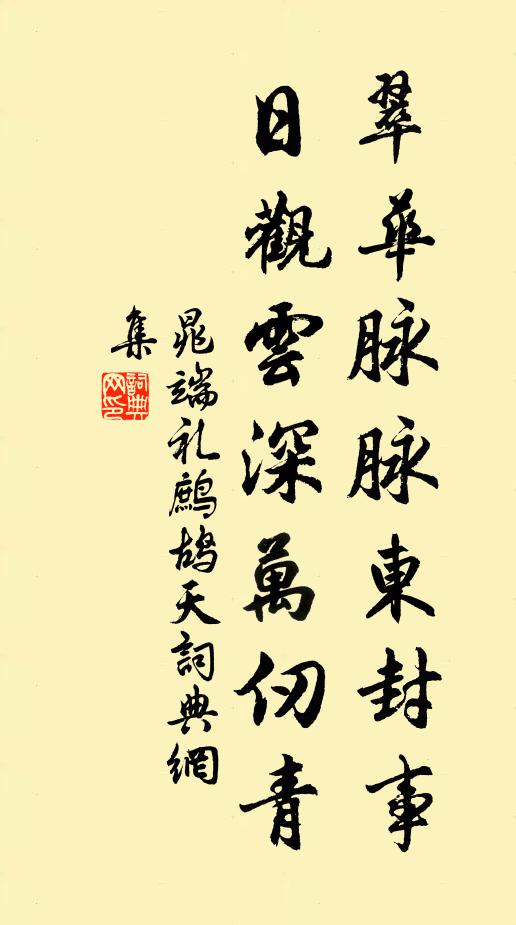 翠華脉脉東封事
日觀雲深萬仞青
晁端礼鷓鴣天詞典網
集
詞典网印